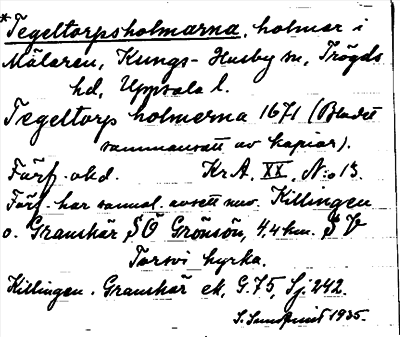 *Tegeltorpsholmarna, holmar i
Mälaren, Kungs-Husby sn, Trögds
hd, Uppsala l.
Tegeltorp holmerna 1671 (Bladet
sammansatt av kopior).
Förf. okd. KrA. XX. N:o 13.
Förf. har sannol. avsett nuv. Killingen
o. Granskär, SÖ Grönsön, 4.4 km. SV
Torsvi kyrka.
Killingen. Granskär ek, G. 75, Sj. 242.
S. 1935.